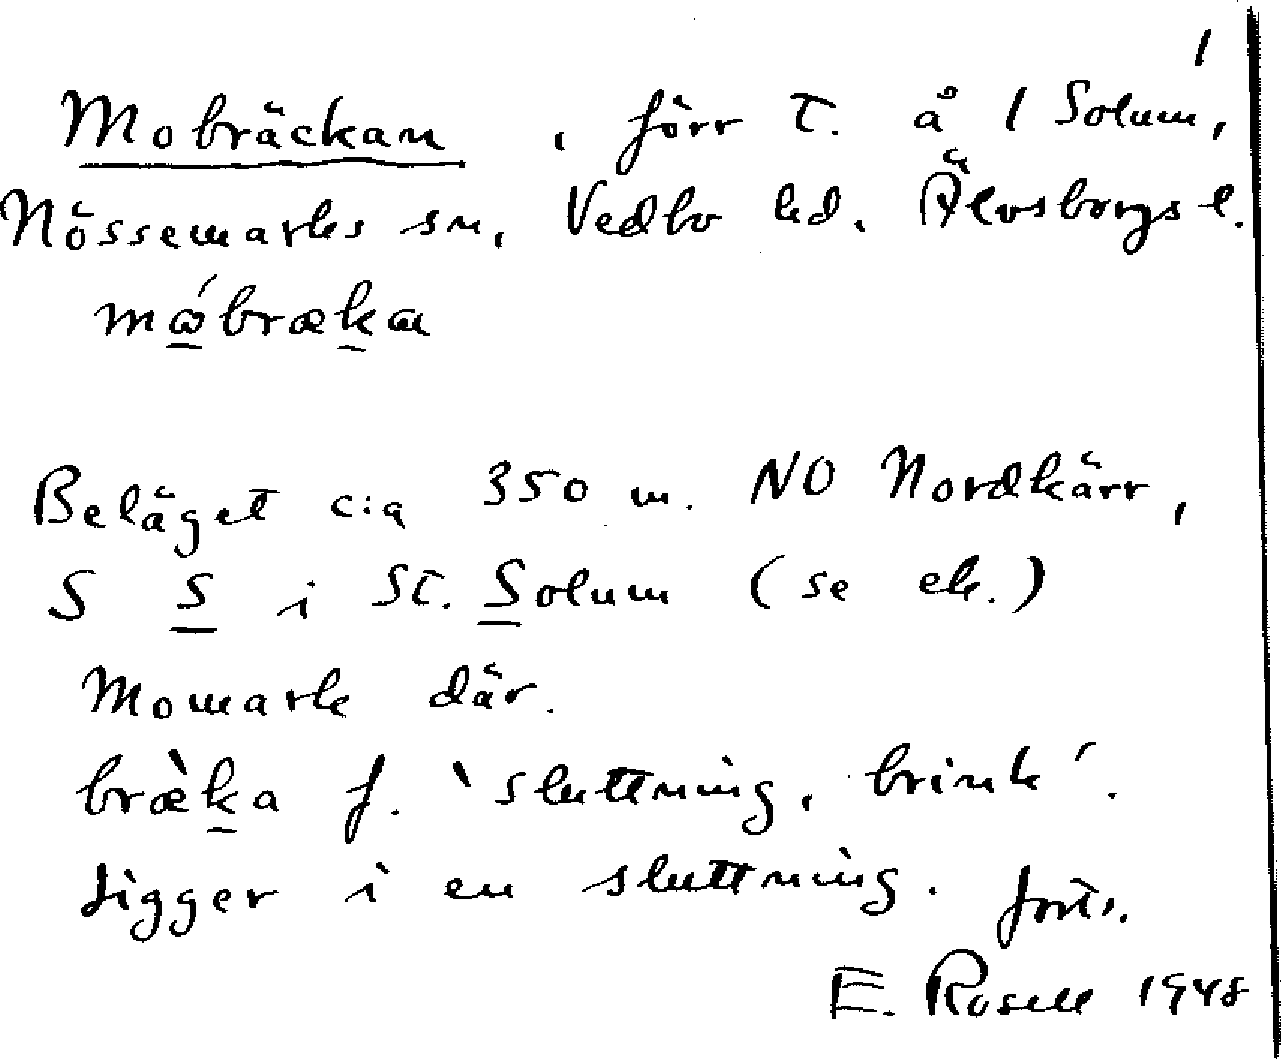 1
Mobräckan, förr t. å 1 Solum,
Nössemarks sn, Vedbo hd. Älvsborgs l.
mώbræka
Beläget c:a 350 m. NO Nordkärr,
S S i St. Solum (se ek.)
Momark där.
bræ̀ka f. 'sluttning, brink'.
Ligger i en sluttning. forts.
E. Rosell 1948